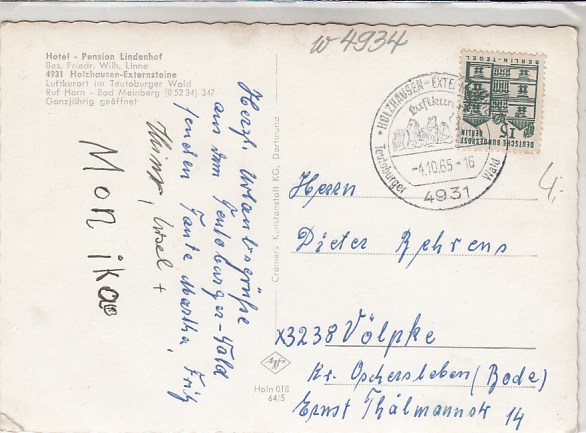 Hotel - Pension Lindenhof
Bes. Friedr. Wilh. Linne
4931 Holzhausen-Externsteine
Luftkurort im Teutoburger Wald
Ruf Horn - Bad Meinberg (0 52 34) 347
Ganzjährig geöffnet
w 4934
Herzl. Urlaubsgrüße
aus dem Teutoburger-Wald
senden Tante Martha, Fritz
Ursel +
Monika
Cramers Kunstanstalt KG, Dortmund
Holn 018
64/5
HOLZHAUSEN-EXTE
Luftkur
-4.10.65-16
Teutoburger Wald
4931
BERLIN-TEGEL
15
DEUTSCHE BUNDESPOST
BERLIN
4,-
Herrn
Dieter Behrens
X3238 Völpke
Kr. Oschersleben (Bode)
Ernst Thälmannstr 14